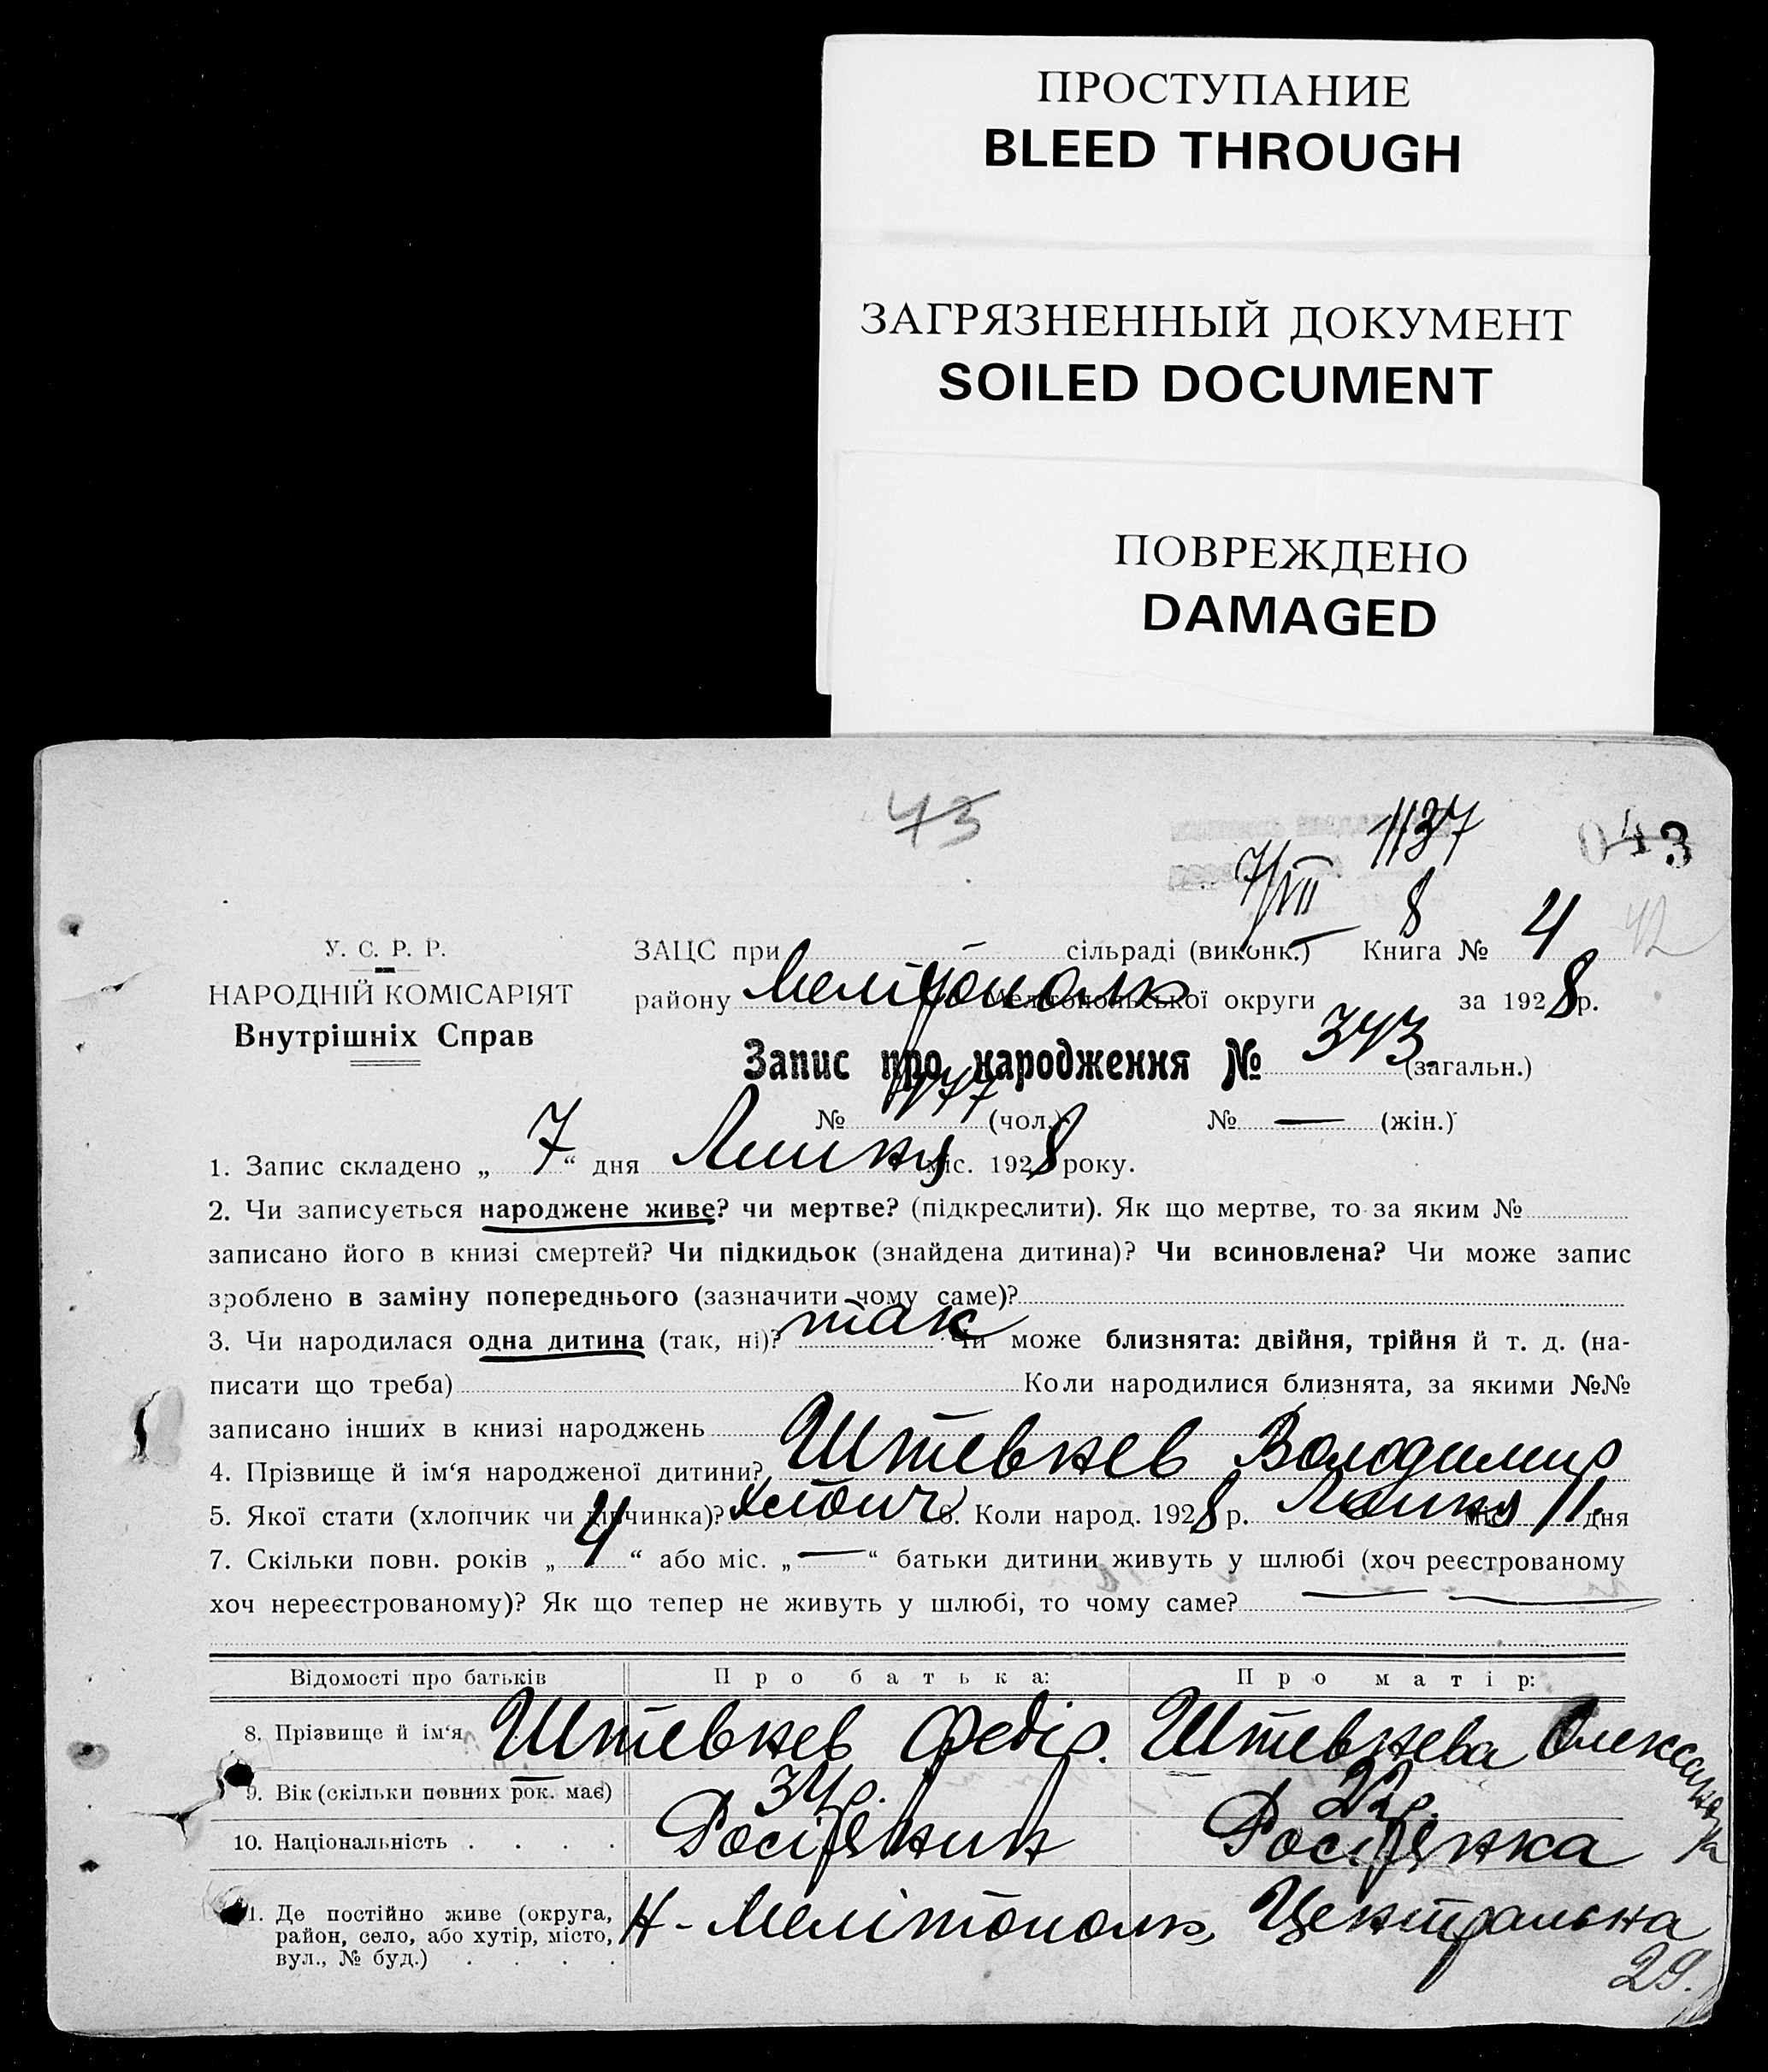 ПРОСТУПАНИЕ
BLEED THROUGH
ЗАГРЯЗНЕННЫЙ ДОКУМЕНТ
SOILED DOCUMENT
ПОВРЕЖДЕНО
DAMAGED
43
1137
043
7/VII 8
42
У. С. Р. Р.
НАРОДНІЙ КОМІСАРІЯТ
Внутрішніх Справ
ЗАЦС при сільраді (виконк.) Книга № 4
району Мелітополь Мелітопольської округи за 1928 р.
Запис про народження № 343 (загальн.)
№ 177 (чол.) № — (жін.)
1. Запис складено „ 7 “ дня Липня міс. 1928 року.
2. Чи записується народжене живе? чи мертве? (підкреслити). Як що мертве, то за яким №
записано його в книзі смертей? Чи підкидьок (знайдена дитина)? Чи всиновлена? Чи може запис
зроблено в заміну попереднього (зазначити чому саме)?
3. Чи народилася одна дитина (так, ні)? так Чи може близнята: двійня, трійня й т. д. (на-
писати що треба) Коли народилися близнята, за якими №№
записано інших в книзі народжень
4. Прізвище й ім‘я народженої дитини? Штевнев Володимир
5. Якої стати (хлопчик чи дівчинка)? хлопч 6. Коли народ. 1928 р. міс. дня
7. Скільки повн. років „ 4 “ або міс. „ — “ батьки дитини живуть у шлюбі (хоч реєстрованому
хоч нереєстрованому)? Як що тепер не живуть у шлюбі, то чому саме? — —
Відомості про батьків Про батька: Про матір:
8. Прізвище й ім‘я Штевнев Федір. Штевнева Олександра
9. Вік (скільки повних рок. має) 34 р. 22 р.
10. Національність . . . . Росіянин Росіянка
11. Де постійно живе (округа,
район, село, або хутір, місто,
вул., № буд.) . . . . Н-Мелітополь, Центральна
29.